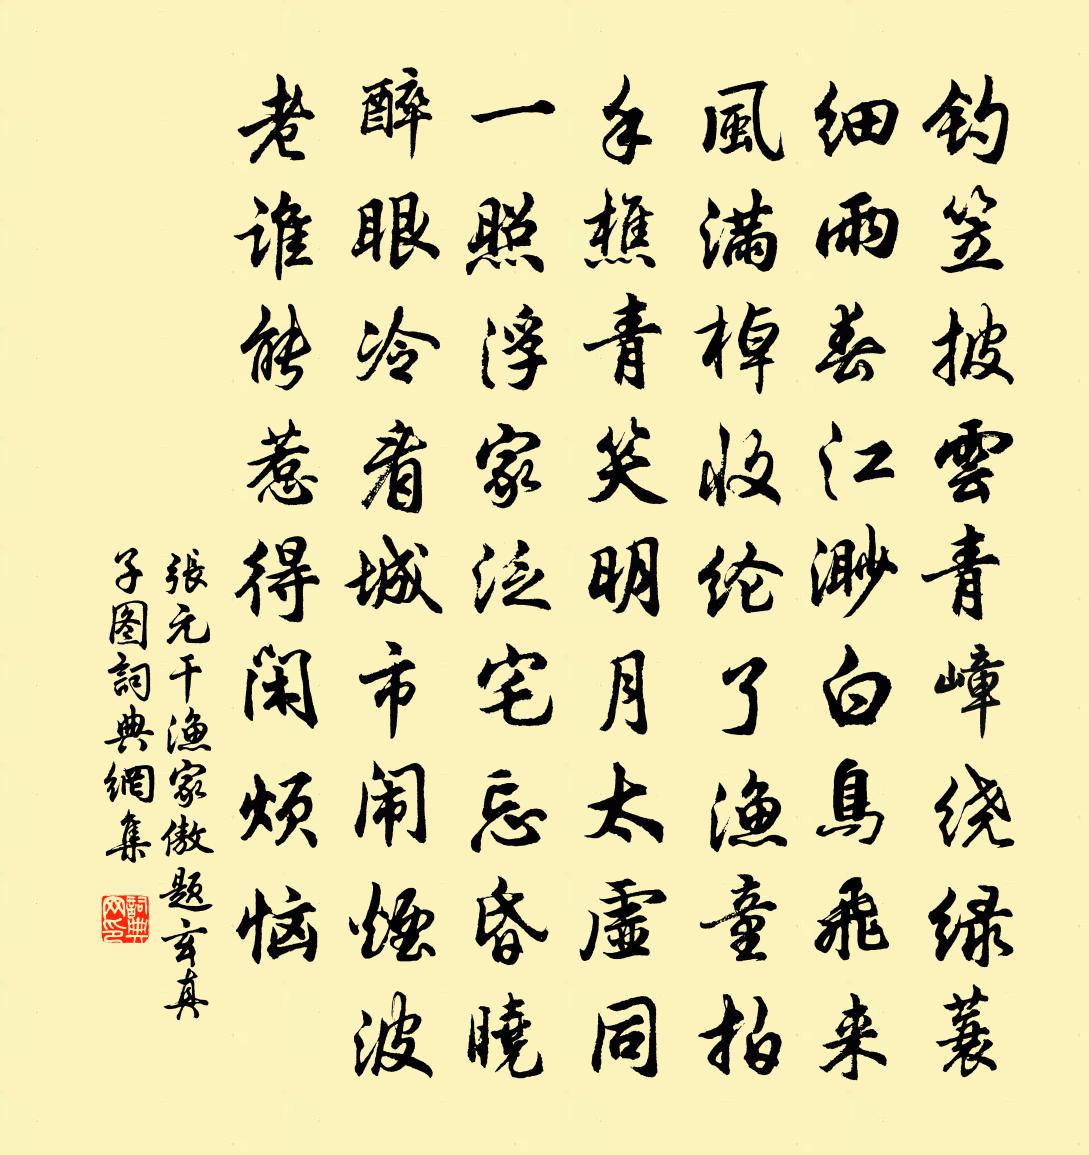 钓笠披雲青嶂绕绿蓑
细雨春江渺白鳥飛来
風滿棹收纶了漁童拍
手樵青笑明月太虛同
一照浮家泛宅忘昏曉
醉眼冷看城市闹煙波
老谁能惹得闲烦恼
張元干漁家傲題玄真
子图詞典網集
詞典网印